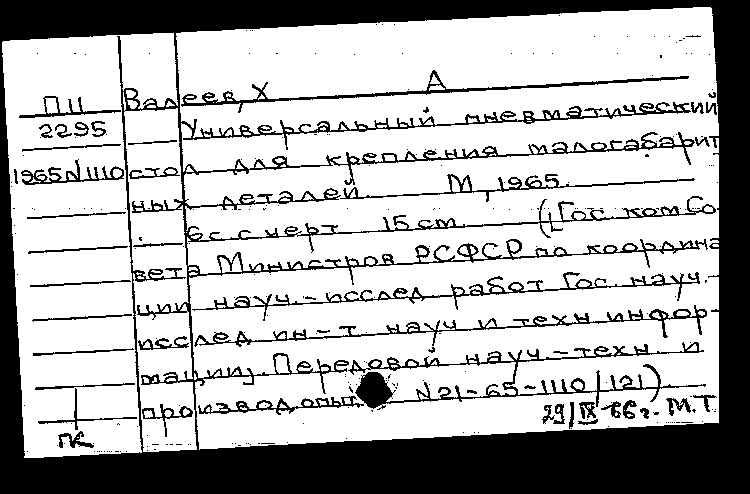 П11 Валеев, Х А
2295 Универсальный пневматический
1965 N1110 стол для крепления малогабарит
ных деталей. М, 1965.
6с с черт 15 cm. ([Гос. ком Со-
вета Министров РСФСР по координа
ции науч.-исслед работ Гос. науч.-
исслед ин-т. науч и техн инфор-
мации]. Передовой науч.-техн. и
производ. опыт. N21-65-1110/121)
29/IX-66г. М.Т.
ПК